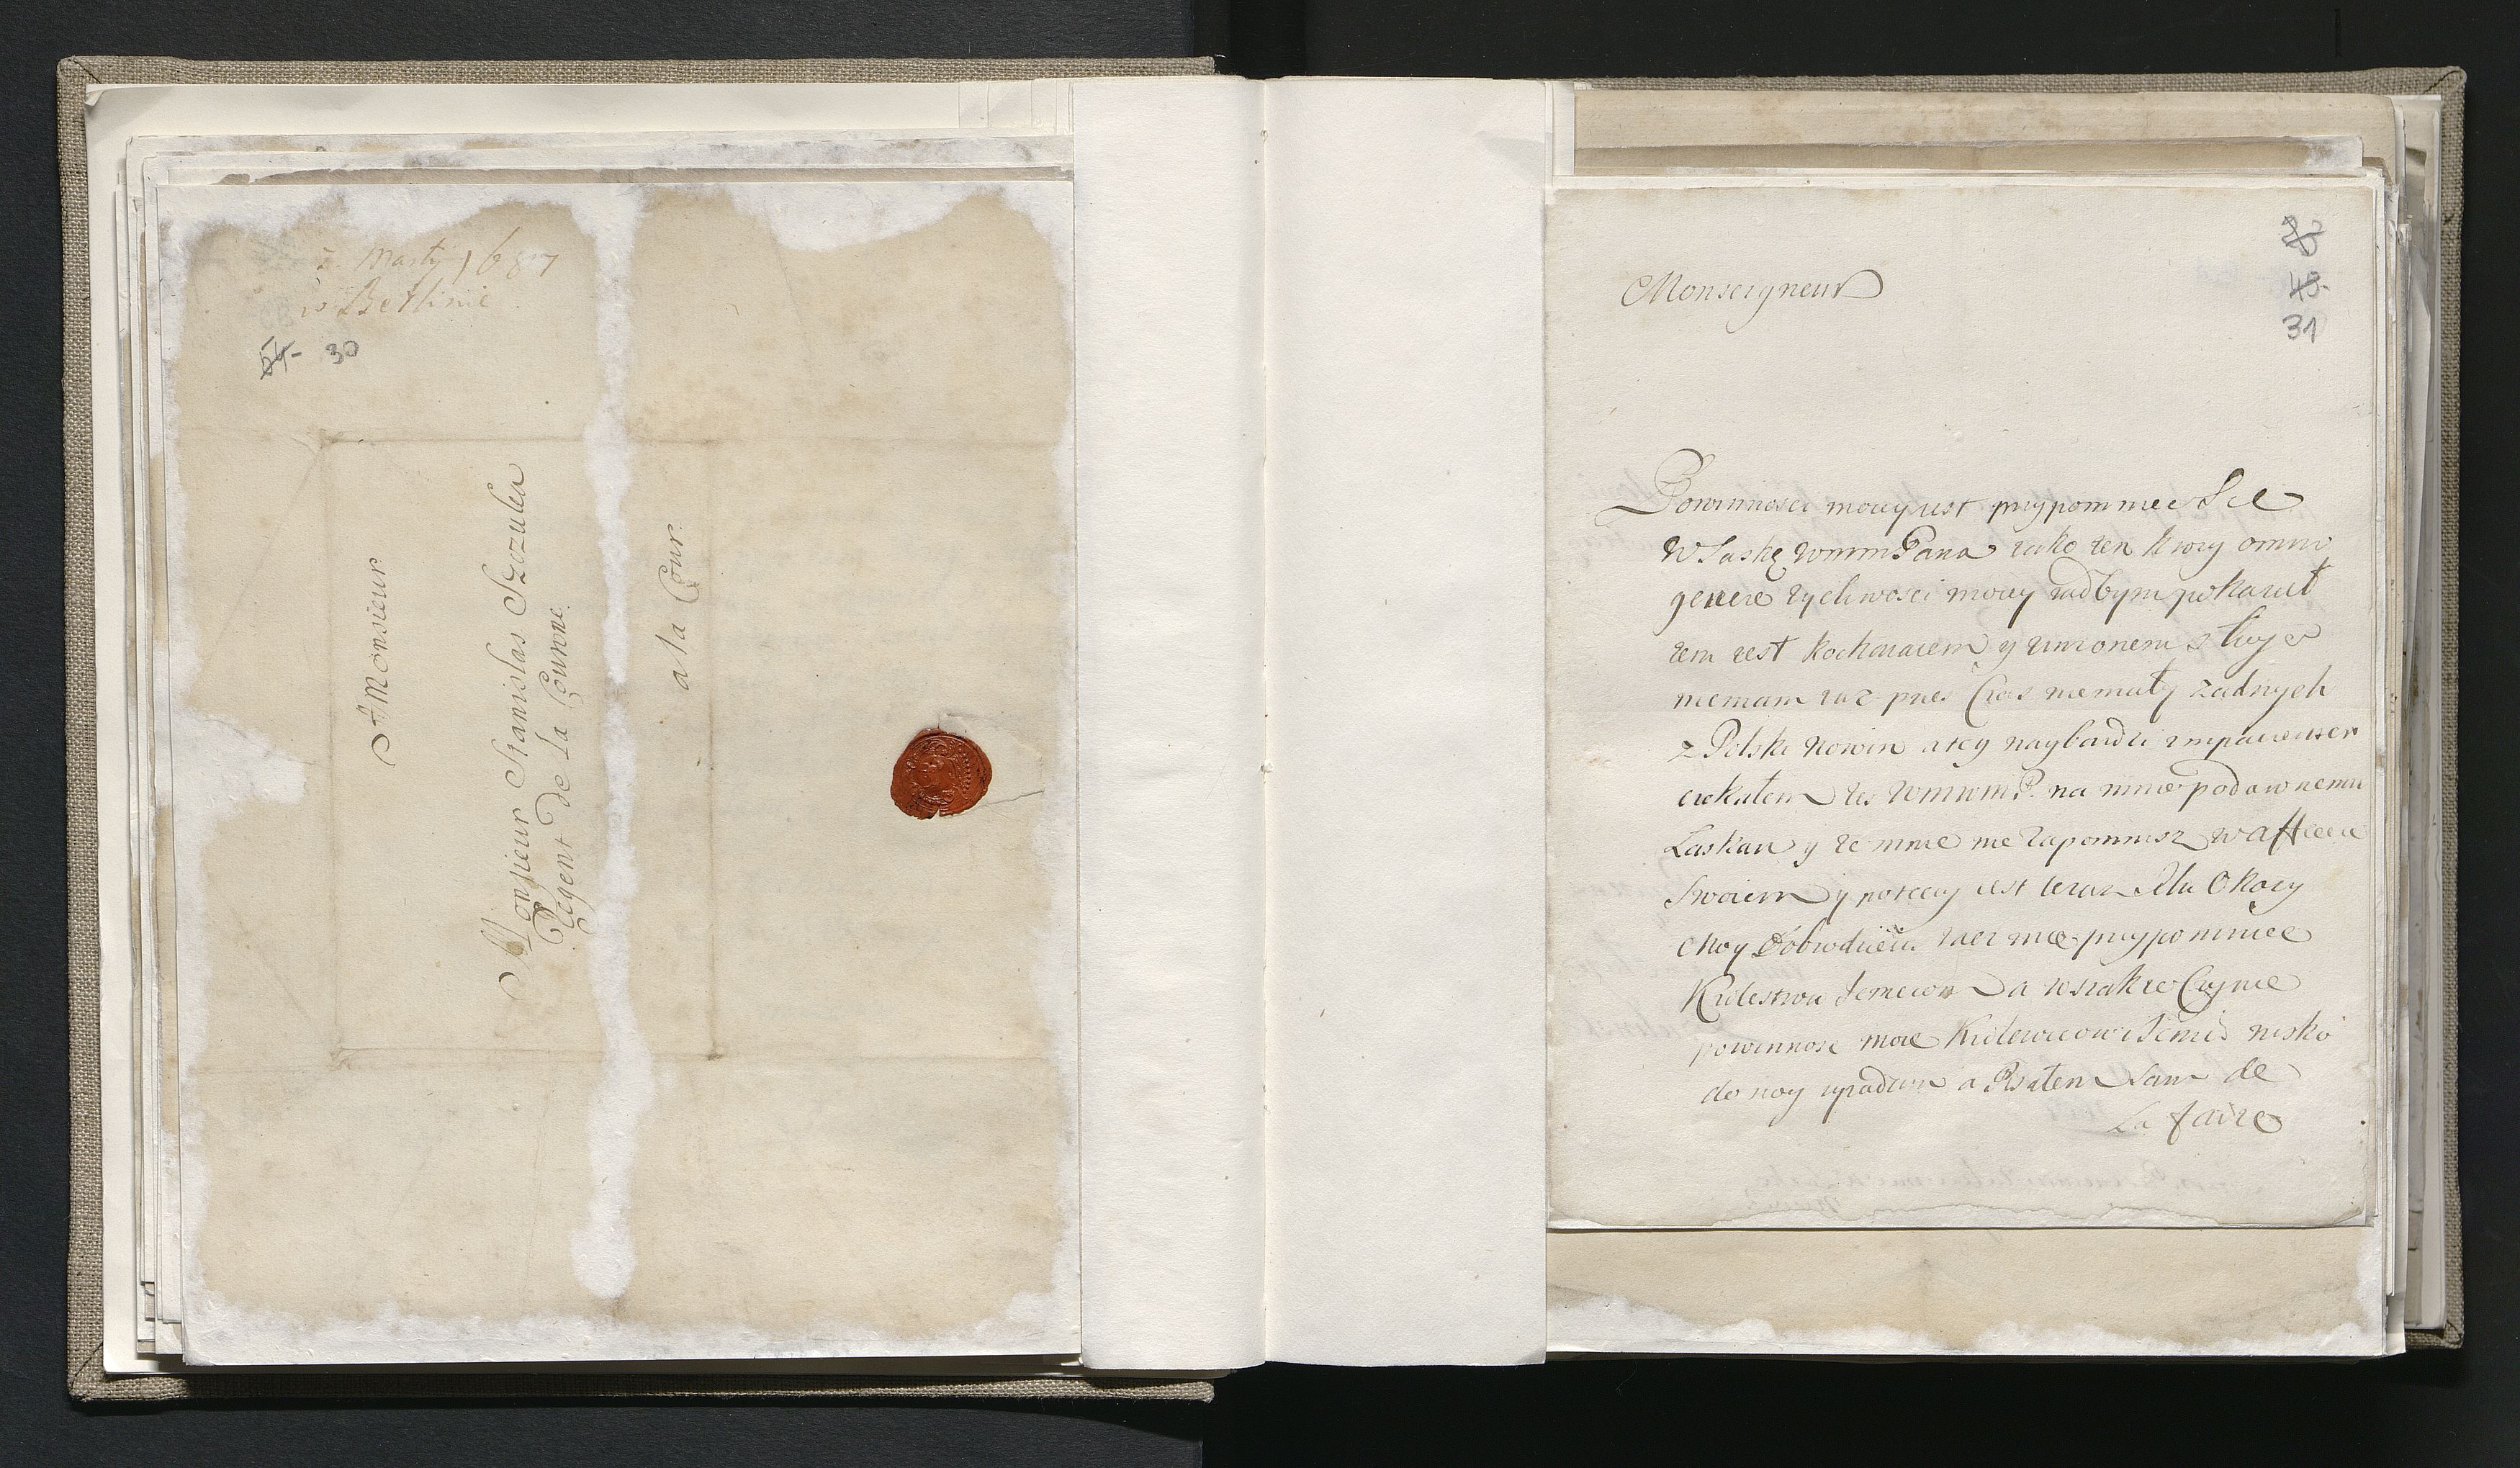 z Martÿ 1687
w Berlinie
54 30
A Monsieur
Monsieur Stanislas Szczuka
Regent de la Couronne
a la Cour.
40
31
Monseigneur
Powinnosci moiey iest przypomniec Sie
W Laskę WmmPana iako ten ktory omni
genere zychwosci moiey rad bym pokazal
zem iest kochaiacem y unizonem sluge
niemam iuz przes Czas niemały zadnych
z Polski nowin a tey naybardzi impatienter
czekalem zes WmmmP. na mnie podawnemu
Laskau y ze mnie nie zapomnisz w affeccie
Swoiem y potrzeby iest teraz dla Okazy
Moy Dobrodzieiu racz mie przypomniec
Krolestwu Ichmciom a wszakze Czynie
powinnosc moie Krolewicowi Jemci nisko
do nog upadam a Pisalem Sam de
La faire